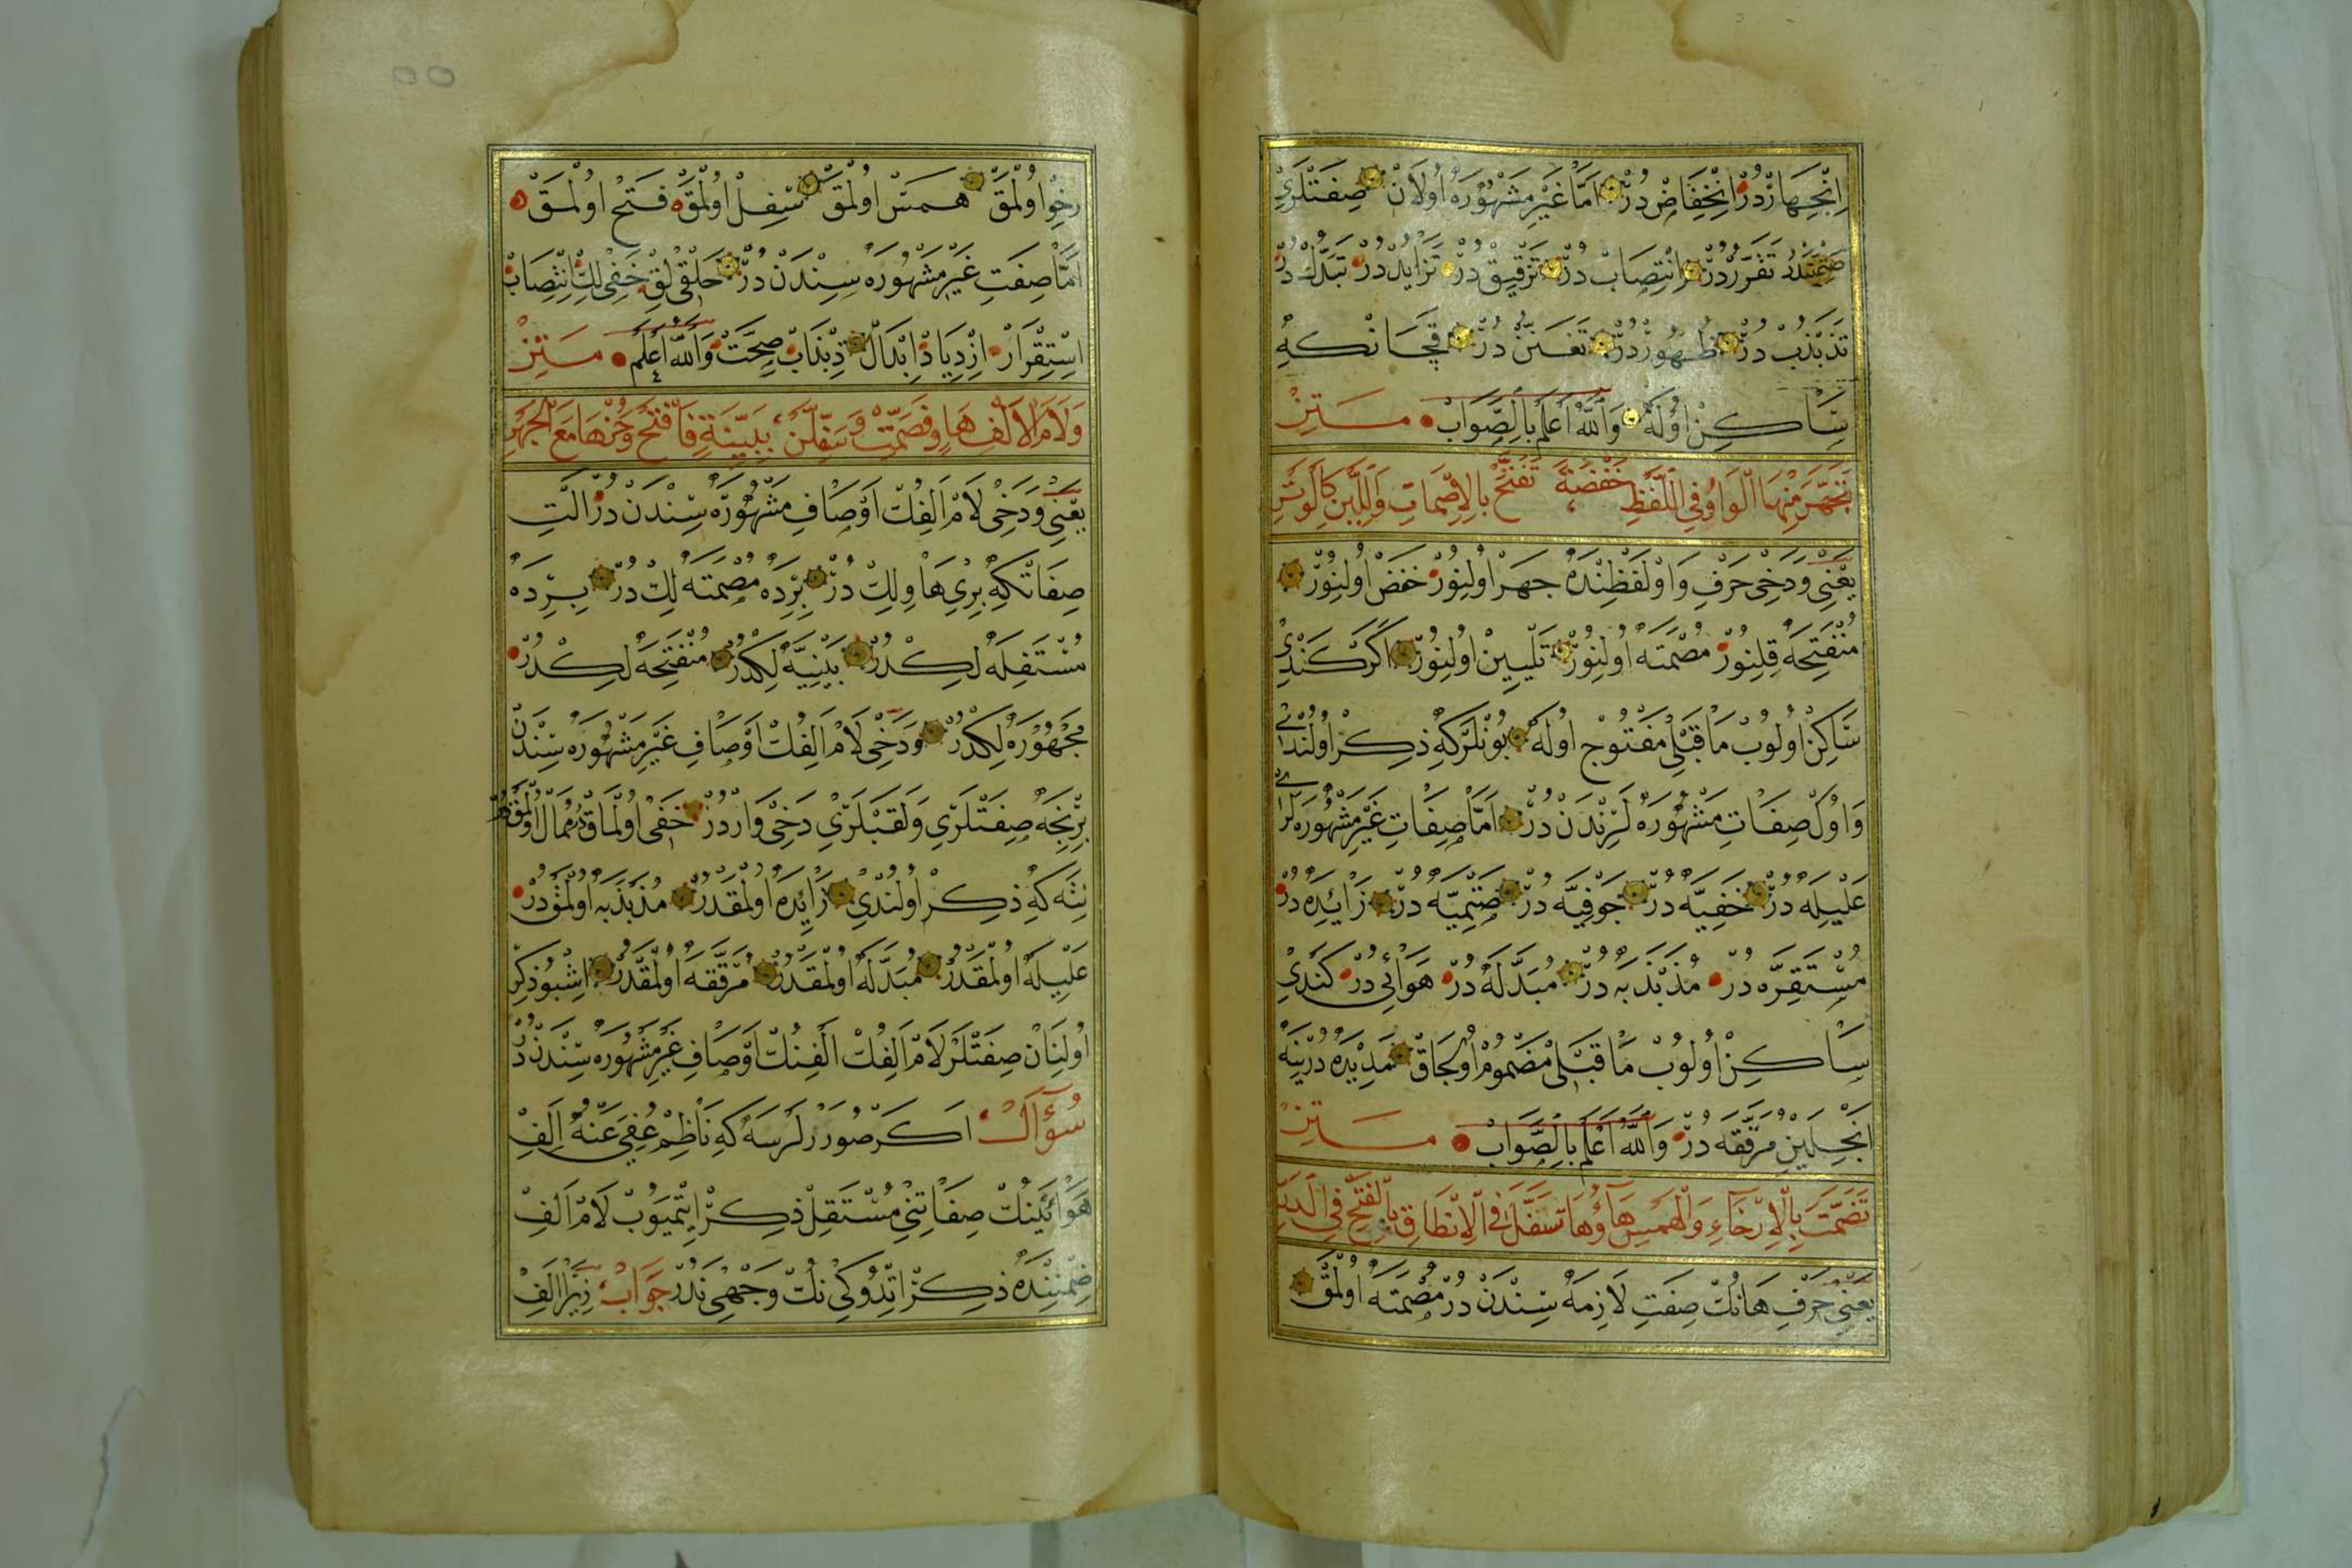 اِنْجِهَارْدُرْ اِنْخِفَاضْ دُرْ اَمَّا غَيْرِ مَشْهُورَه اُولَانْ صِفَتْلَرِي
تَفَرُّرْدُرْ اِنْتِصَابْ دُرْ تَرْقِيقْ دُرْ تَزَايُدْ دُرْ تَبَدُّلْ دُرْ
تَذَبْذُبْ دُرْ ظُهُورْدُرْ دُرْ قَچَانْكِه
سَاكِنْ اُولَه وَاللّٰهُ اَعْلَمُ بِالصَّوَابْ مَتِنْ
مِنْهَا الْوَاوُ فِي اللَّفْظِ خَفْضَةً تَفَتَّحْ بِالْاِصْمَاتِ وَاللِّينِ كَالْوَتَرِ
يَعْنِي وَدَخِي حَرْفِ وَاوْ لَفْظِنْدَه جَهَرْ اُولِنُورْ خَفَضْ اُولِنُورْ
مُنْفَتِحَه قِلِنُورْ مُصْمَتَه اُولِنُورْ تَلْيِينْ اُولِنُورْ اَكَرْ كَنْدِي
سَاكِنْ اُولُوبْ مَا قَبْلِي مَفْتُوحْ اُولَه بُونْلَرْكِه ذِكِرْ اُولُنْدِي
وَاوُكْ صِفَاتِ مَشْهُورَه لَرِنْدَنْ دُرْ اَمَّا صِفَاتِ غَيْرِ مَشْهُورَه لَرِي
عَلِيلَه دُرْ خَفِيَّه دُرْ جَوْفِيَّه دُرْ صَتْمِيَّه دُرْ زَائِدَه دُرْ
مُسْتَقِرَّه دُرْ مُذَبْذَبَه دُرْ مُبَدَّلَه دُرْ هَوَائِي دُرْ كَنَدِي
سَاكِنْ اُولُوبْ مَا قَبْلِي مَضْمُومْ اُولِجَاقْ مَدِيَّه دُرْ يِنَه
اَنْجِلَيِنْ مُرَقَّقَه دُرْ وَاللّٰهُ اَعْلَمُ بِالصَّوَابْ مَتِنْ
تَصَمَّتْ بِالْاِرْخَاءِ وَالْهَمْسِ هَاؤُهَا تَسَفَّلْ فِي الْاِنْطَاقِ بِالْفَتْحِ فِي
يَعْنِي حَرْفِ هَانُكْ صِفَتِ لَازِمَه سِنْدَنْ دُرْ مُصْمَتَه اُولْمَقْ
رِخْوْ اُولْمَقْ هَمَسْ اُولْمَقْ سَفِلْ اُولْمَقْ فَتِحْ اُولْمَقْ
اَمَّا صِفَتِ غَيْرِ مَشْهُورَه سِنْدَنْ دُرْ حَلْقِي لِقْ خَفِي لِكْ اِنْتِصَابْ
اِسْتِقْرَارْ اِزْدِيَادْ اِبْدَالْ ذِبْذَابْ صِحَّتْ وَاللّٰهُ اَعْلَمْ مَتِنْ
وَلَامُ الْاَلِفْ هَاوٍ فَصَمَّتْ وَسَفِّلَنْ بِبَيِّنَةٍ فَافْتَحْ وَخُنْهَا مَعَ الْجَهَرِ
يَعْنِي وَدَخِي لَامْ اَلِفُكْ اَوْصَافِ مَشْهُورَه سِنْدَنْ دُرْ اَلْتِ
صِفَاتْكِه بِرِي هَاوِيلِكْ دُرْ بِرِدَه مُصْمَتَه لِكْ دُرْ بِرِدَه
مُسْتَفِلَه لِكْدُرْ بَيْنِيَّه لِكْدُرْ مُنْفَتِحَه لِكْدُرْ
مَجْهُورَه لِكْدُرْ وَدَخِي لَامْ اَلِفُكْ اَوْصَافِ غَيْرِ مَشْهُورَه سِنْدَنْ
بِرْنِجَه صِفَتْلَرِي وَلَقَبْلَرِي دَخِي وَارْدُرْ خَفِي اُولْمَاقْ دُرْ مُمَالْ اُولْمَقْدُرْ
نِتَه كِه ذِكِرْ اُولُنْدِي زَائِدَه اُولْمَقْدُرْ مُذَبْذَبَه اُولْمَقْدُرْ
عَلِيلَه اُولْمَقْدُرْ مُبَدَّلَه اُولْمَقْدُرْ مُرَقَّقَه اُولْمَقْدُرْ اِشْبُو ذِكِرْ
اُولِنَانْ صِفَتْلَرْ لَامْ اَلِفُكْ اَلِفِنُكْ اَوْصَافِ غَيْرِ مَشْهُورَه سِنْدَنْ دُرْ
سُؤَالْ اَكَرْ صُورَرْلَرْسَه كِه نَاظِمْ عُفِيَ عَنْهُ اَلِفِ
هَوَائِيَّنُكْ صِفَاتِنِي مُسْتَقِلْ ذِكِرْ اِيتْمَيُوبْ لَامْ اَلِفْ
ضِمْنِنْدَه ذِكِرْ اِتْدُوكِي نُكْ وَجْهِي نَدُرْ جَوَابْ زِيرَا اَلِفْ